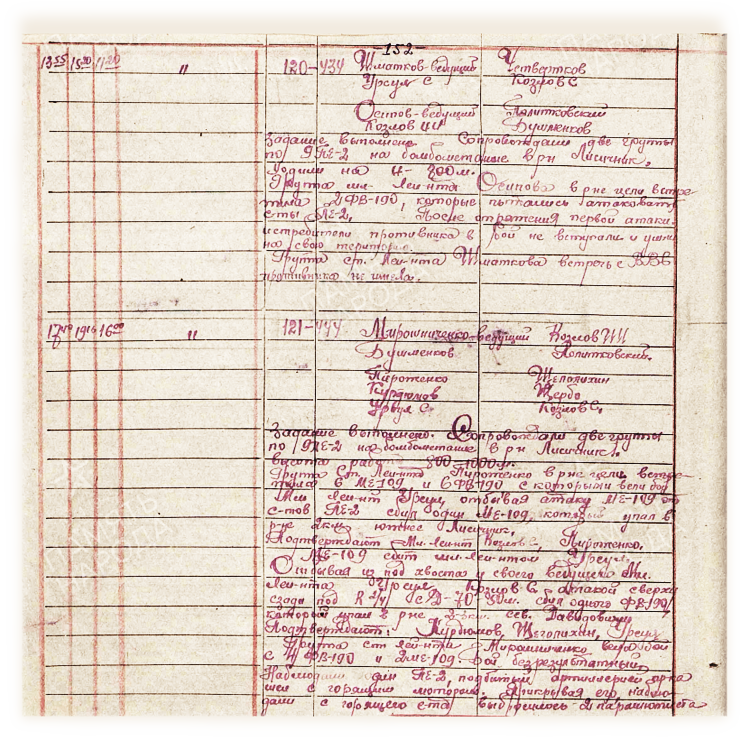 -152-
13 55 15 20 11 20 " 120-434 Шматков-ведущий Четвертков
Урсул С Козлов С
Осипов-ведущий Политковский
Козлов ИИ Бушменков
Задание выполнено. Сопровождали две группы
по 9 ПЕ-2 на бомбометание в р-н Лисичник.
Ходили на H- 800м.
Группа мл. Лей-нта Осипова в р-не цели встре-
тила 2 ФВ-190, которые пытались атаковать
с-ты ПЕ-2. После отражения первой атаки
истребители противника в бой не вступали и ушли
на свою територию.
Группа ст. Лей-нта Шматкова встречь с ВВС
противника не имела.
17 40 19 16 16 00 " 121-444 Мирошниченко-ведущий Козлов ИИ
Бушменков Политковский.
Пироженко Щеголихин
Курдюмов Щербо
Урсул С. Козлов С.
Задание выполнено. Сопровождали две группы
по 9 ПЕ-2 на бомбометание в р-н Лисичник.
высота 800-1000м.
Группа Ст. Лей-нта Пироженко в р-не цели встре-
тила 6 МЕ-109 и 6 ФВ-190 с которыми вели бой
Мл. Лей-нт Урсул отбивая атаку МЕ-109 от
с-тов ПЕ-2 сбил один МЕ-109, который упал в
р-не 2км южнее Лисичник.
Подтверждают Мл. Лей-нт Козлов С, Пироженко,
МЕ-109 сбит мл. лей-нтом Урсул.
Отбивая из под хвоста у своего ведущего Мл.
Лей-нта Урсул Козлов С. атакой сверху
сзади под R 2/4 с Д-70-50м. сбил одного ФВ-190,
который упал в р-не сев. Давидовцы
Подтверждают: Курдюмов, Щеголихин, Урсул
Группа ст лей-нта Мирошниченко вела бой
с 4 ФВ-190 и 2 МЕ-109. Бой безрезультатный.
Наблюдали один ПЕ-2 подбитый артиллерией про-
шел с горящим мотором. Прикрывая его наблю-
дали с горящего с-та выбросилось 2 парашютиста